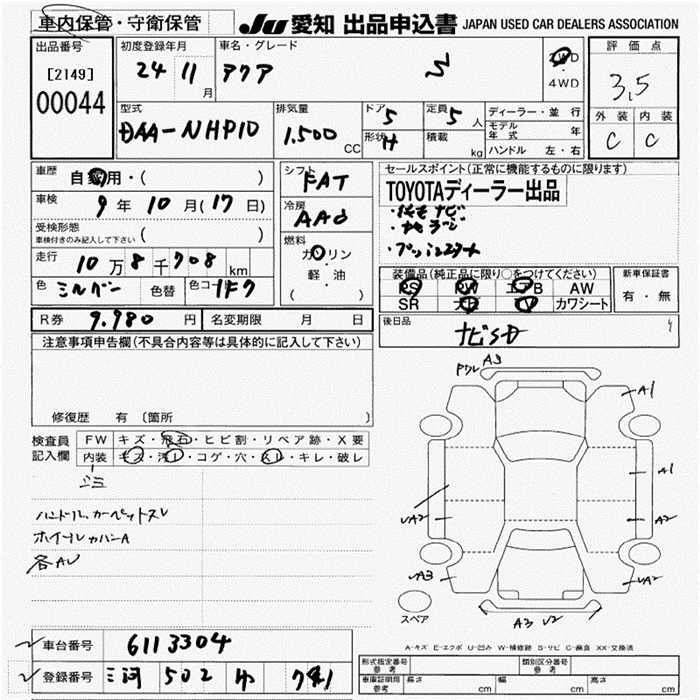 車内保管・守衛保管
JU 愛知 出品申込書 JAPAN USED CAR DEALERS ASSOCIATION
出品番号
[2149]
00044
初度登録年月
24 11月
車名・グレード
アクア S
2WD
・
4WD
評価点
3.5
外装 内装
C C
型式
DAA-NHP10
排気量
1.500 CC
ドア 5
形状 H
定員 5人
積載 kg
ディーラー・並行
モデル年式 年
ハンドル 左・右
車歴
自家用・( )
車検
9年10月(17日)
受検形態
車検付きのみ記入して下さい ( )
走行
10万8千708km
色 シルバー 色替 色コード 1F7
シフト
FAT
冷房
AAC
燃料
ガソリン
・
軽・油
( )
セールスポイント(正常に機能するものに限ります)
TOYOTAディーラー出品
・ナビ
・プッシュスタート
装備品(純正品に限り○をつけてください)
PS PW エアB AW
SR ナビ TV カワシート
新車保証書
有・無
R券 9.980円 名変期限 月 日
後日品
ナビSD
注意事項申告欄(不具合内容等は具体的に記入して下さい)
修復歴 有 〔箇所 〕
検査員記入欄
FW キズ・飛石・ヒビ割・リペア跡・X要
内装 キズ・汚レ・コゲ・穴・スレ・キレ・破レ
ゴミ
ハンドル、カーペットスレ
ホイールカバーA
各AU
A3
A1
UA2
A1
A2
UA3
UA2
A3 U2
スペア
A-キズ E-エクボ U-凹み W-補修跡 S-サビ C-腐食 XX-交換済
車台番号 6113304
登録番号 三河 502
形式指定番号 参考
類別区分番号 参考
車庫証明用 参考 長さ cm 幅 cm 高さ cm